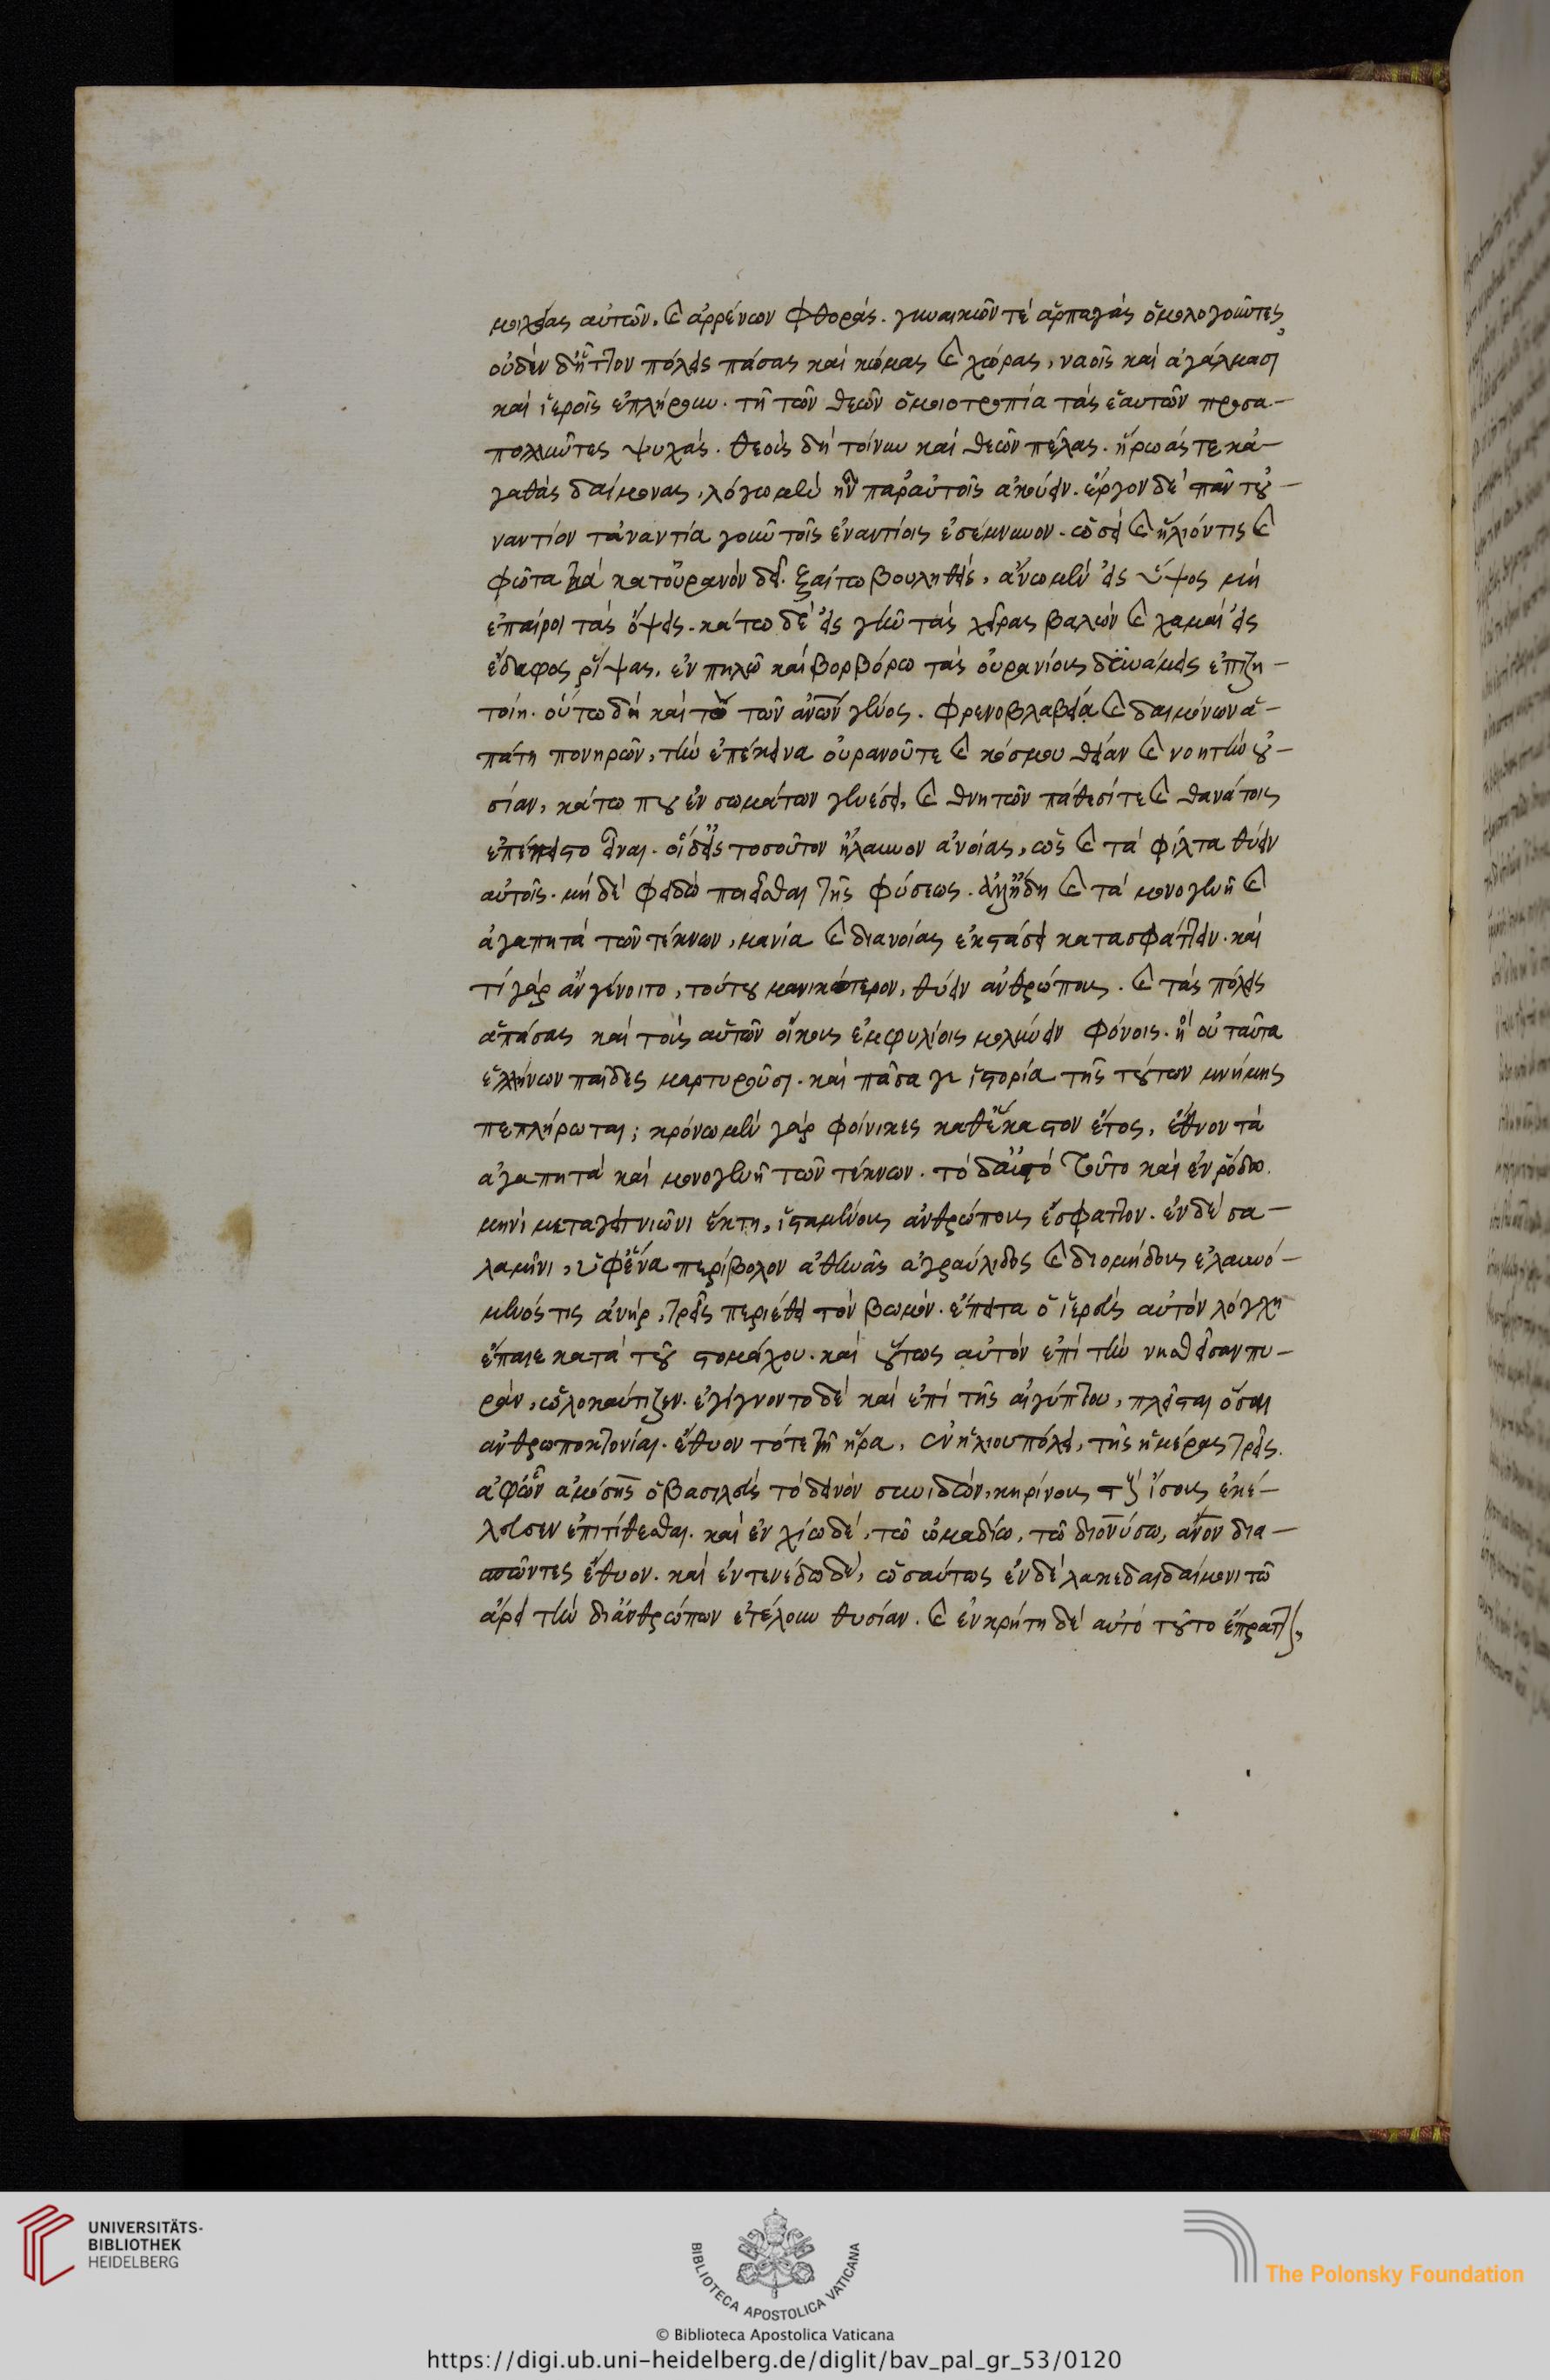 μοιχείας αὐτῶν. καὶ ἀρρένων φθοράς. γυναικῶν τὲ ἁρπαγὰς ὁμολογοῦντες
οὐδὲν δ' ἧττον πόλεις πάσας καὶ κώμας καὶ χώρας, ναοῖς καὶ ἀγάλμασι
καὶ ἱεροῖς ἐπλήρουν. τῇ τῶν θεῶν ὁμοιοτροπία τὰς ἑαυτῶν προσα-
πολλῦντες ψυχάς. θεοὺς δὴ τοίνυν καὶ θεῶν πέλας. ἥρωάς τε κἀ-
γαθὰς δαίμονας, λόγω μὲν ἦν παρ' αὐτοῖς ἀκούειν. ἔργον δὲ πᾶν του-
ναντίον τἀναντία γοῦν τοῖς ἐναντίοις ἐσέμνυνον. ὡσεὶ καὶ ἥλιόν τις καὶ
φῶτα τὰ κατ' οὐρανὸν δεῖξαί τω βουληθεὶς, ἄνω μὲν εἰς ὕψος μὴ
ἐπαίροι τὰς ὄψεις. κάτω δὲ εἰς γῆν τὰς χεῖρας βαλὼν καὶ χαμαὶ εἰς
ἔδαφος ῥίψας. ἐν πηλῶ καὶ βορβόρω τὰς οὐρανίους δυνάμεις ἐπιζη-
τοίη. οὕτω δὴ καὶ τὸ τῶν ἀνῶν γένος. φρενοβλαβεία καὶ δαιμόνων ἀ-
πάτη πονηρῶν, τὴν ἐπέκεινα οὐρανοῦ τε καὶ κόσμου θείαν καὶ νοητὴν οὐ-
σίαν, κάτω που ἐν σωμάτων γενέσει, καὶ θνητῶν πάθεσί τε καὶ θανάτοις
ἐπέπειστο εἶναι. οἱ δ' εἰς τοσοῦτον ἤλαυνον ἀνοίας, ὡς καὶ τὰ φίλτα θύειν
αὐτοῖς. μὴ δὲ φειδὼ ποιεῖσθαι τῆς φύσεως. ἀλλ' ἤδη καὶ τὰ μονογενῆ καὶ
ἀγαπητὰ τῶν τέκνων, μανία καὶ διανοίας ἐκστάσει κατασφάττειν. καὶ
τί γὰρ ἂν γένοιτο, τούτου μανικώτερον, θύειν ἀνθρώπους. καὶ τὰς πόλεις
ἁπάσας καὶ τοὺς αὐτῶν οἴκους ἐμφυλίοις μολύνειν φόνοις. ἢ οὐ ταῦτα
ἑλλήνων παῖδες μαρτυροῦσι. καὶ πᾶσά γε ἱστορία τῆς τούτων μνήμης
πεπλήρωται; κρόνω μὲν γὰρ φοίνικες καθ' ἕκαστον ἔτος, ἔθυον τὰ
ἀγαπητὰ καὶ μονογενῆ τῶν τέκνων. τὸ δ' αὐτὸ τοῦτο καὶ ἐν ῥόδω.
μηνὶ μεταγειτνιῶνι ἕκτη, ἱσταμένους ἀνθρώπους ἔσφαττον. ἐν δὲ σα-
λαμῖνι, ὑφ' ἕνα περίβολον ἀθηνᾶς ἀγραύλιδος καὶ διομήδους ἐλαυνό-
μενός τις ἀνὴρ, τρεῖς περιέθει τὸν βωμόν. ἔπειτα ὁ ἱερεὺς αὐτὸν λόγχη
ἔπαιε κατὰ τοῦ στομάχου. καὶ οὕτως αὐτὸν ἐπὶ τὴν νησθεῖσαν πυ-
ράν, ὡλοκαύτιζεν. ἐγίγνοντο δὲ καὶ ἐπὶ τῆς αἰγύπτου, πλεῖσται ὅσαι
ἀνθρωποκτονίαι. ἔθυον τότε τῇ ἥρα, ἐν ἡλιουπόλει, τῆς ἡμέρας τρεῖς.
ἀφ' ὧν ἀμώσης ὁ βασιλεὺς τὸ δεινὸν συνιδὼν, κηρίνους τοὺς ἴσους ἐκέ-
λευσεν ἐπιτίθεσθαι. καὶ ἐν χίω δὲ, τῶ ὠμαδίω, τῶ διονύσω, ἄνον δια-
σπῶντες ἔθυον. καὶ ἐν τενέδω δὲ, ὡσαύτως ἐν δὲ λακεδαιδαίμονι τῶ
ἄρει τὴν δι' ἀνθρώπων ἐτέλουν θυσίαν. καὶ ἐν κρήτη δὲ αὐτὸ τοῦτο ἔπραττον,
UNIVERSITÄTS-
BIBLIOTHEK
HEIDELBERG
BIBLIOTECA APOSTOLICA VATICANA
The Polonsky Foundation
© Biblioteca Apostolica Vaticana
https://digi.ub.uni-heidelberg.de/diglit/bav_pal_gr_53/0120